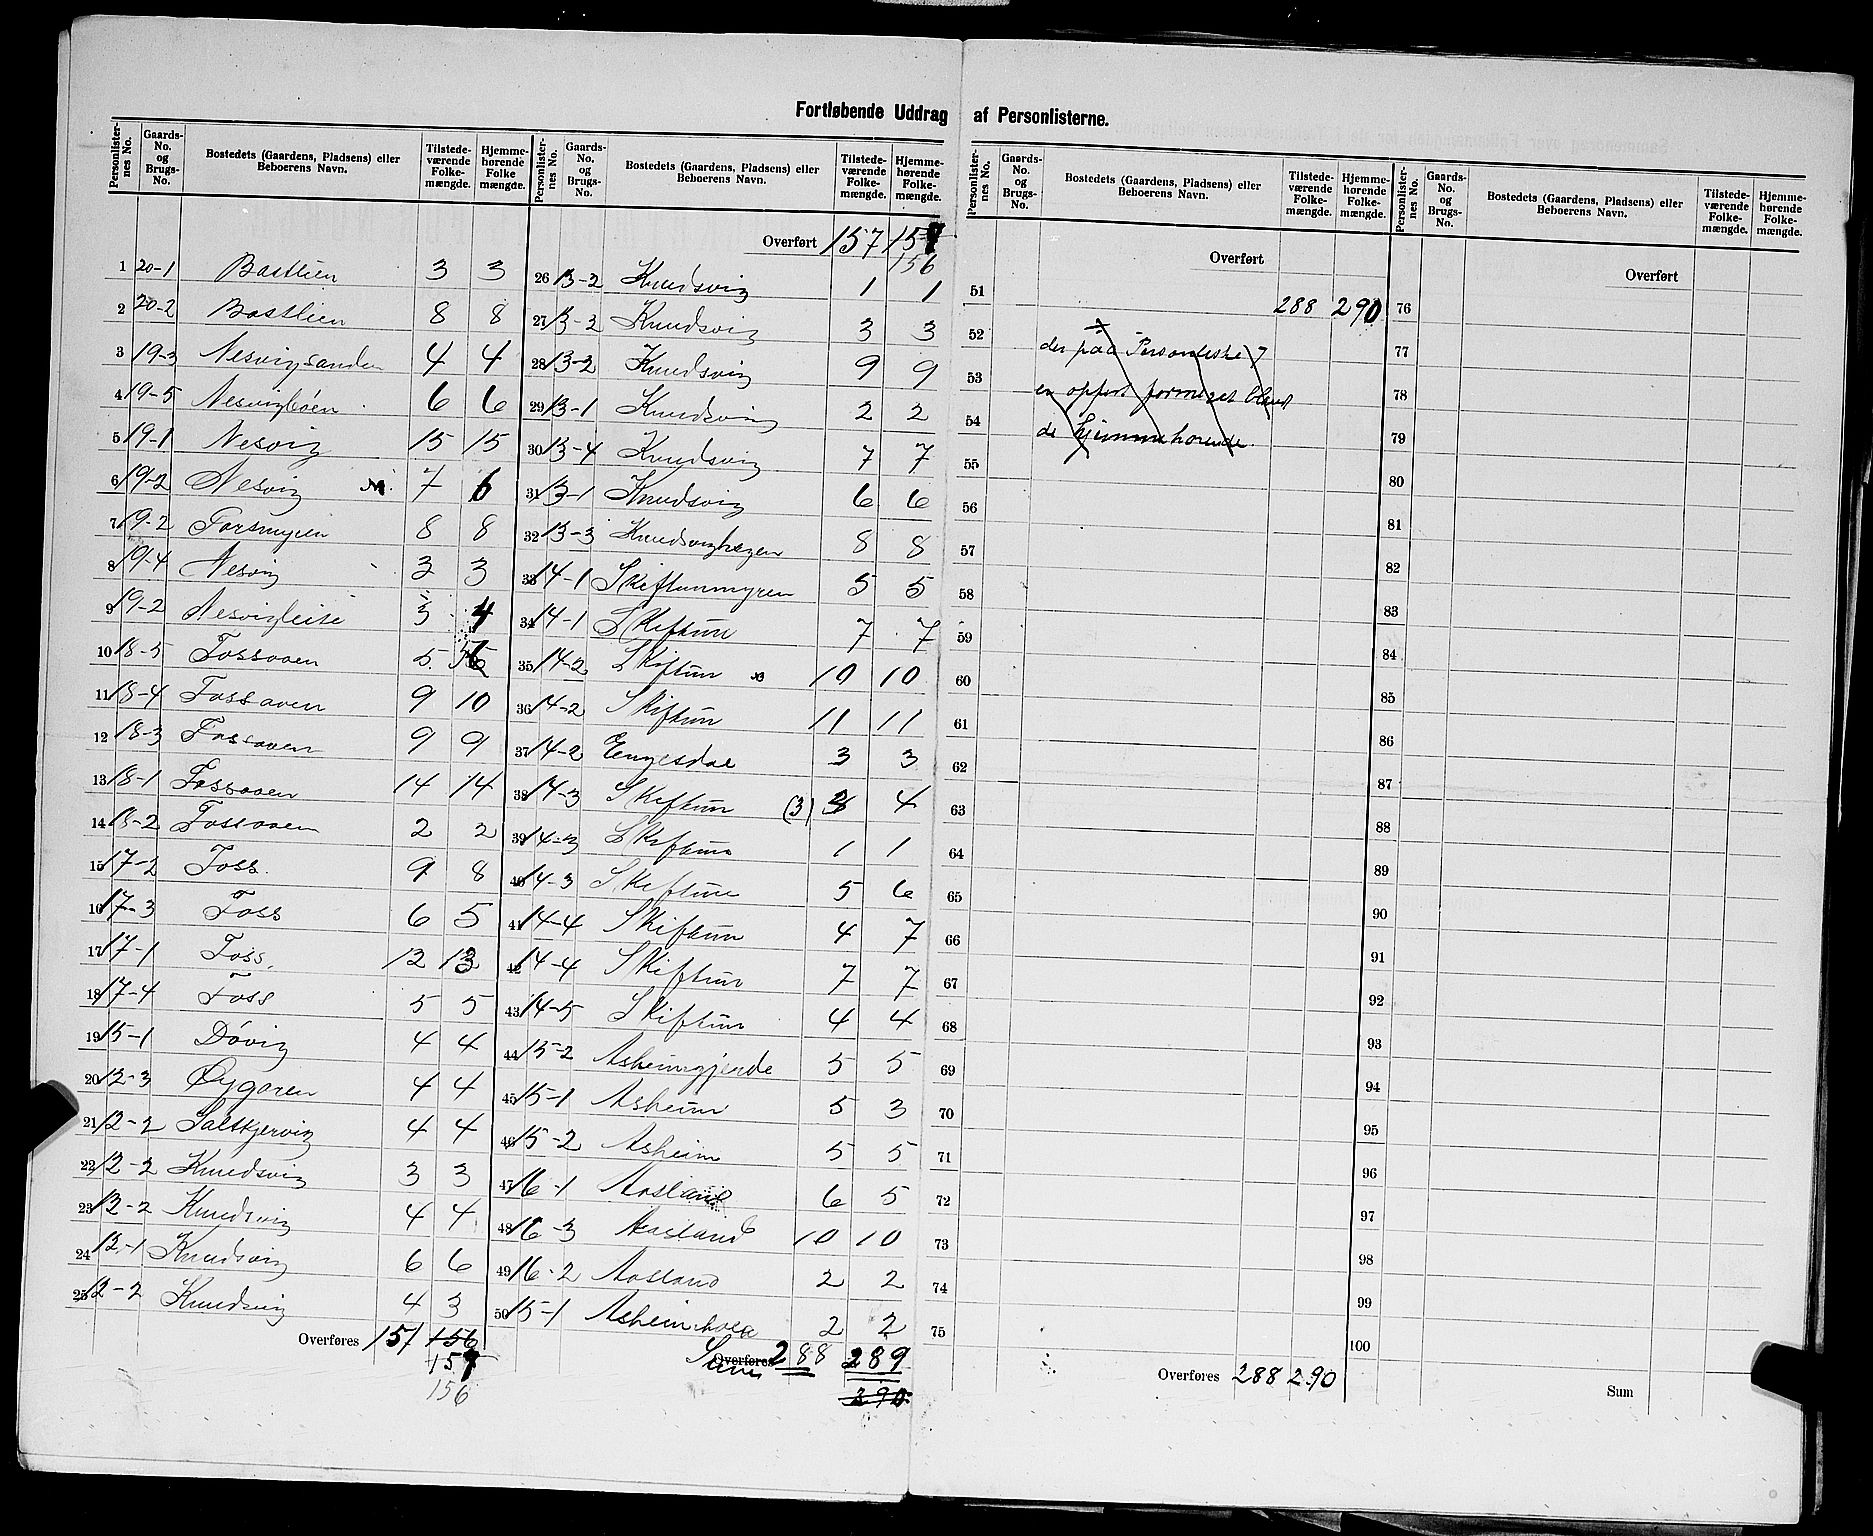 Fortløbende Uddrag af Personlisterne.
Personlisternes No. Gaards-No. og Brugs-No. Bostedets (Gaardens, Pladsens) eller Beboerens Navn. Tilstedeværende Folkemængde. Hjemmehørende Folkemængde.
1 20-1 Bastlien 3 3
2 20-2 Bastlien 8 8
3 19-3 Nesvigsanden 4 4
4 19-5 Nesvigbøen 6 6
5 19-1 Nesvig 15 15
6 19-2 Nesvig 7 6
7 19-2 Forsmyren 8 8
8 19-4 Nesvig 3 3
9 19-2 Nesvigleite 3 4
10 18-5 Fossaaen 5
11 18-4 Fossaaen 9 10
12 18-3 Fossaaen 9 9
13 18-1 Fossaaen 14 14
14 18-2 Fossaaen 2 2
15 17-2 Foss. 9 8
16 17-3 Foss 6 5
17 17-1 Foss. 12 13
18 17-4 Foss 5 5
19 15-1 Døvig 4 4
20 12-3 Øygaren 4 4
21 12-2 Saltkjervig 4 4
22 12-2 Knudsvig 3 3
23 12-2 Knudsvig 4 4
24 12-1 Knudsvig 6 6
25 12-2 Knudsvig 4 3
Overføres 157 156
157
156
Personlisternes No. Gaards-No. og Brugs-No. Bostedets (Gaardens, Pladsens) eller Beboerens Navn. Tilstedeværende Folkemængde. Hjemmehørende Folkemængde.
Overført 157 157
156
26 13-2 Knudsvig 1 1
27 13-2 Knudsvig 3 3
28 13-2 Knudsvig 9 9
29 13-1 Knudsvig 2 2
30 13-4 Knudsvig 7 7
31 13-1 Knudsvig 6 6
32 13-3 Knudsvighagen 8 8
33 14-1 Skiftunmyren 5 5
34 14-1 Skiftun 7 7
35 14-2 Skiftun 10 10
36 14-2 Skiftun 11 11
37 14-2 Engesdal 3 3
38 14-3 Skiftun (3) 3 4
39 14-3 Skiftun 1 1
40 14-3 Skiftun 5 6
41 14-4 Skiftun 4 7
42 14-4 Skiftun 7 7
43 14-5 Skiftun 4 4
44 15-2 Asheimgjerde 5 5
45 15-1 Asheim 5 3
46 15-2 Asheim 5 5
47 16-1 Aasland 6 5
48 16-3 Aasland 10 10
49 16-2 Aasland 2 2
50 15-1 Asheim 2 2
Overføres Sum 288 289
290
Personlisternes No. Gaards-No. og Brugs-No. Bostedets (Gaardens, Pladsens) eller Beboerens Navn. Tilstedeværende Folkemængde. Hjemmehørende Folkemængde.
Overført
51 288 290
52 der paa Personliste 7
53 en opført formeget bland
54 de hjemmehørende.
55
56
57
58
59
60
61
62
63
64
65
66
67
68
69
70
71
72
73
74
75
Overføres 288 290
Personlisternes No. Gaards-No. og Brugs-No. Bostedets (Gaardens, Pladsens) eller Beboerens Navn. Tilstedeværende Folkemængde. Hjemmehørende Folkemængde.
Overført
76
77
78
79
80
81
82
83
84
85
86
87
88
89
90
91
92
93
94
95
96
97
98
99
100
Sum